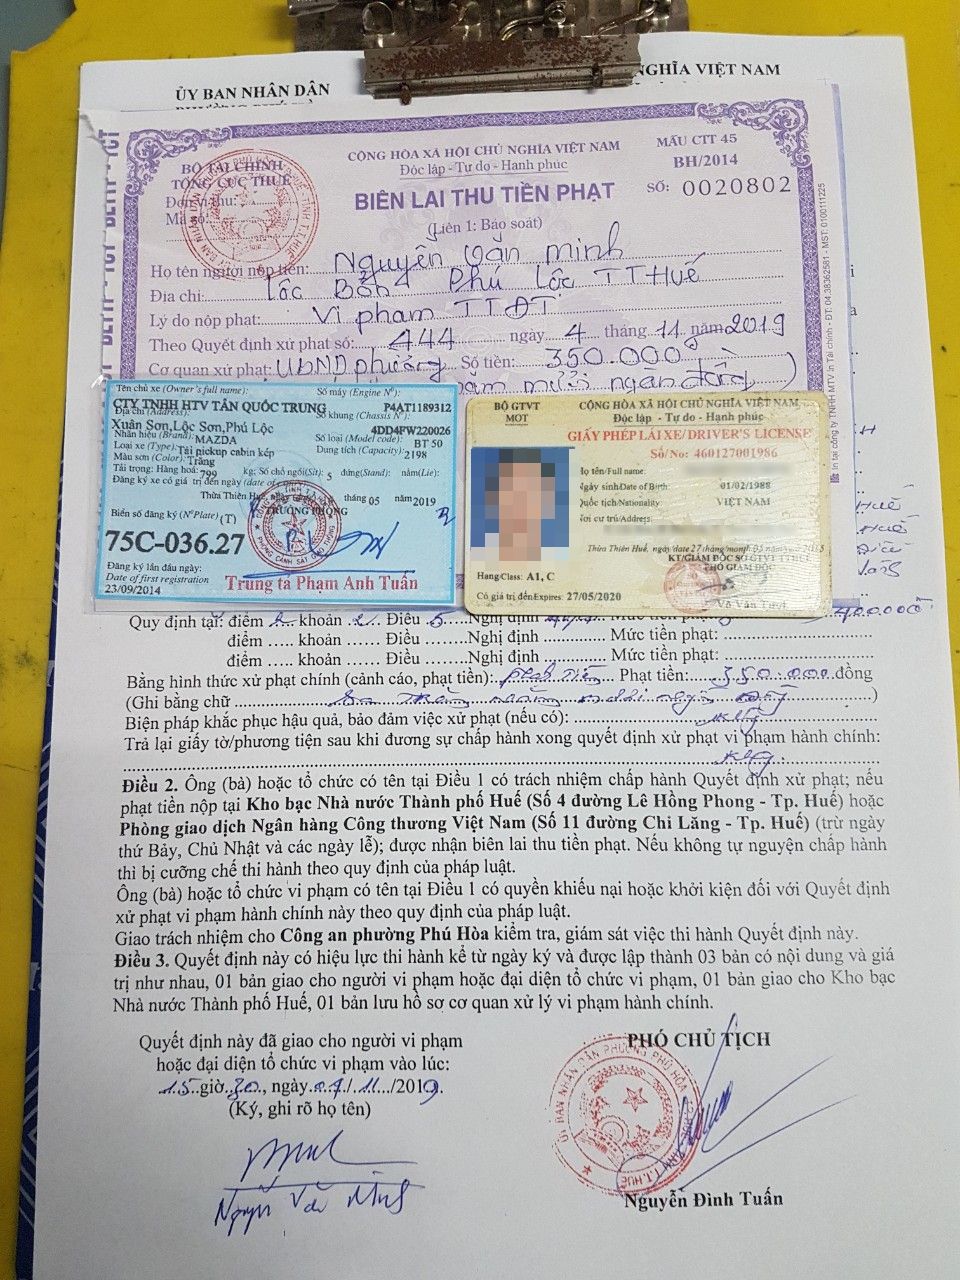 ỦY BAN NHÂN DÂN
NGHĨA VIỆT NAM
BỘ TÀI CHÍNH
TỔNG CỤC THUẾ
Đơn vị thu:
Mã số:
CỘNG HÒA XÃ HỘI CHỦ NGHĨA VIỆT NAM
Độc lập - Tự do - Hạnh phúc
MẪU CTT 45
BH/2014
SỐ: 0020802
BIÊN LAI THU TIỀN PHẠT
(Liên 1: Báo soát)
Họ tên người nộp tiền: Nguyễn Văn Minh
Địa chỉ: Lộc Bổn Phú Lộc TT Huế
Lý do nộp phạt: Vi phạm TTĐT
Theo Quyết định xử phạt số: 444 ngày 4 tháng 11 năm 2019
Cơ quan xử phạt: UBND phường Số tiền: 350.000
năm mươi ngàn đồng)
Tên chủ xe (Owner's full name):
Số máy (Engine Nº):
CTY TNHH HTV TÂN QUỐC TRUNG
P4AT1189312
Địa chỉ (Address):
Số khung (Chassis Nº):
Xuân Sơn,Lộc Sơn,Phú Lộc
4DD4FW220026
Nhãn hiệu (Brand): MAZDA
Số loại (Model code): BT 50
Loại xe (Type): Tải pickup cabin kép
Dung tích (Capacity): 2198
Màu sơn (Color): Trắng
Tải trọng: Hàng hoá: 799 kg; Số chỗ ngồi(Sit): 5 đứng(Stand): nằm(Lie):
Đăng ký xe có giá trị đến ngày
Thừa Thiên Huế, tháng 05 năm 2019
TRƯỞNG PHÒNG
Biển số đăng ký (NºPlate) (T)
75C-036.27
Đăng ký lần đầu ngày:
Date of first registration
23/09/2014
Trung tá Phạm Anh Tuấn
BỘ GTVT
MOT
CỘNG HÒA XÃ HỘI CHỦ NGHĨA VIỆT NAM
Độc lập - Tự do - Hạnh phúc
GIẤY PHÉP LÁI XE/DRIVER'S LICENSE
Số/No: 460127001986
Họ tên/Full name:
Ngày sinh/Date of Birth: 01/02/1988
Quốc tịch/Nationality: VIỆT NAM
Nơi cư trú/Address:
Thừa Thiên Huế, ngày/date 27 tháng/month 05 năm/year
KT/GIÁM ĐỐC SỞ GTVT
PHÓ GIÁM ĐỐC
Hạng/Class: A1, C
Có giá trị đến/Expires: 27/05/2020
Quy định tại: điểm khoản 2 Điều 5 Nghị định Mức tiền phạt: 400.000đ
điểm ..... khoản ..... Điều .......Nghị định ............. Mức tiền phạt: ......................
điểm ..... khoản ..... Điều .......Nghị định ............. Mức tiền phạt: ......................
Bằng hình thức xử phạt chính (cảnh cáo, phạt tiền): phạt tiền Phạt tiền: 350.000 đồng
(Ghi bằng chữ Ba trăm năm mươi ngàn đồng)
Biện pháp khắc phục hậu quả, bảo đảm việc xử phạt (nếu có):
Trả lại giấy tờ/phương tiện sau khi đương sự chấp hành xong quyết định xử phạt vi phạm hành chính:
Điều 2. Ông (bà) hoặc tổ chức có tên tại Điều 1 có trách nhiệm chấp hành Quyết định xử phạt; nếu
phạt tiền nộp tại Kho bạc Nhà nước Thành phố Huế (Số 4 đường Lê Hồng Phong - Tp. Huế) hoặc
Phòng giao dịch Ngân hàng Công thương Việt Nam (Số 11 đường Chi Lăng - Tp. Huế) (trừ ngày
thứ Bảy, Chủ Nhật và các ngày lễ); được nhận biên lai thu tiền phạt. Nếu không tự nguyện chấp hành
thì bị cưỡng chế thi hành theo quy định của pháp luật.
Ông (bà) hoặc tổ chức vi phạm có tên tại Điều 1 có quyền khiếu nại hoặc khởi kiện đối với Quyết định
xử phạt vi phạm hành chính này theo quy định của pháp luật.
Giao trách nhiệm cho Công an phường Phú Hòa kiểm tra, giám sát việc thi hành Quyết định này.
Điều 3. Quyết định này có hiệu lực thi hành kể từ ngày ký và được lập thành 03 bản có nội dung và giá
trị như nhau, 01 bản giao cho người vi phạm hoặc đại diện tổ chức vi phạm, 01 bản giao cho Kho bạc
Nhà nước Thành phố Huế, 01 bản lưu hồ sơ cơ quan xử lý vi phạm hành chính.
Quyết định này đã giao cho người vi phạm
hoặc đại diện tổ chức vi phạm vào lúc:
15 giờ 30, ngày 07/11/2019.
(Ký, ghi rõ họ tên)
Nguyễn Văn Minh
PHÓ CHỦ TỊCH
Nguyễn Đình Tuấn